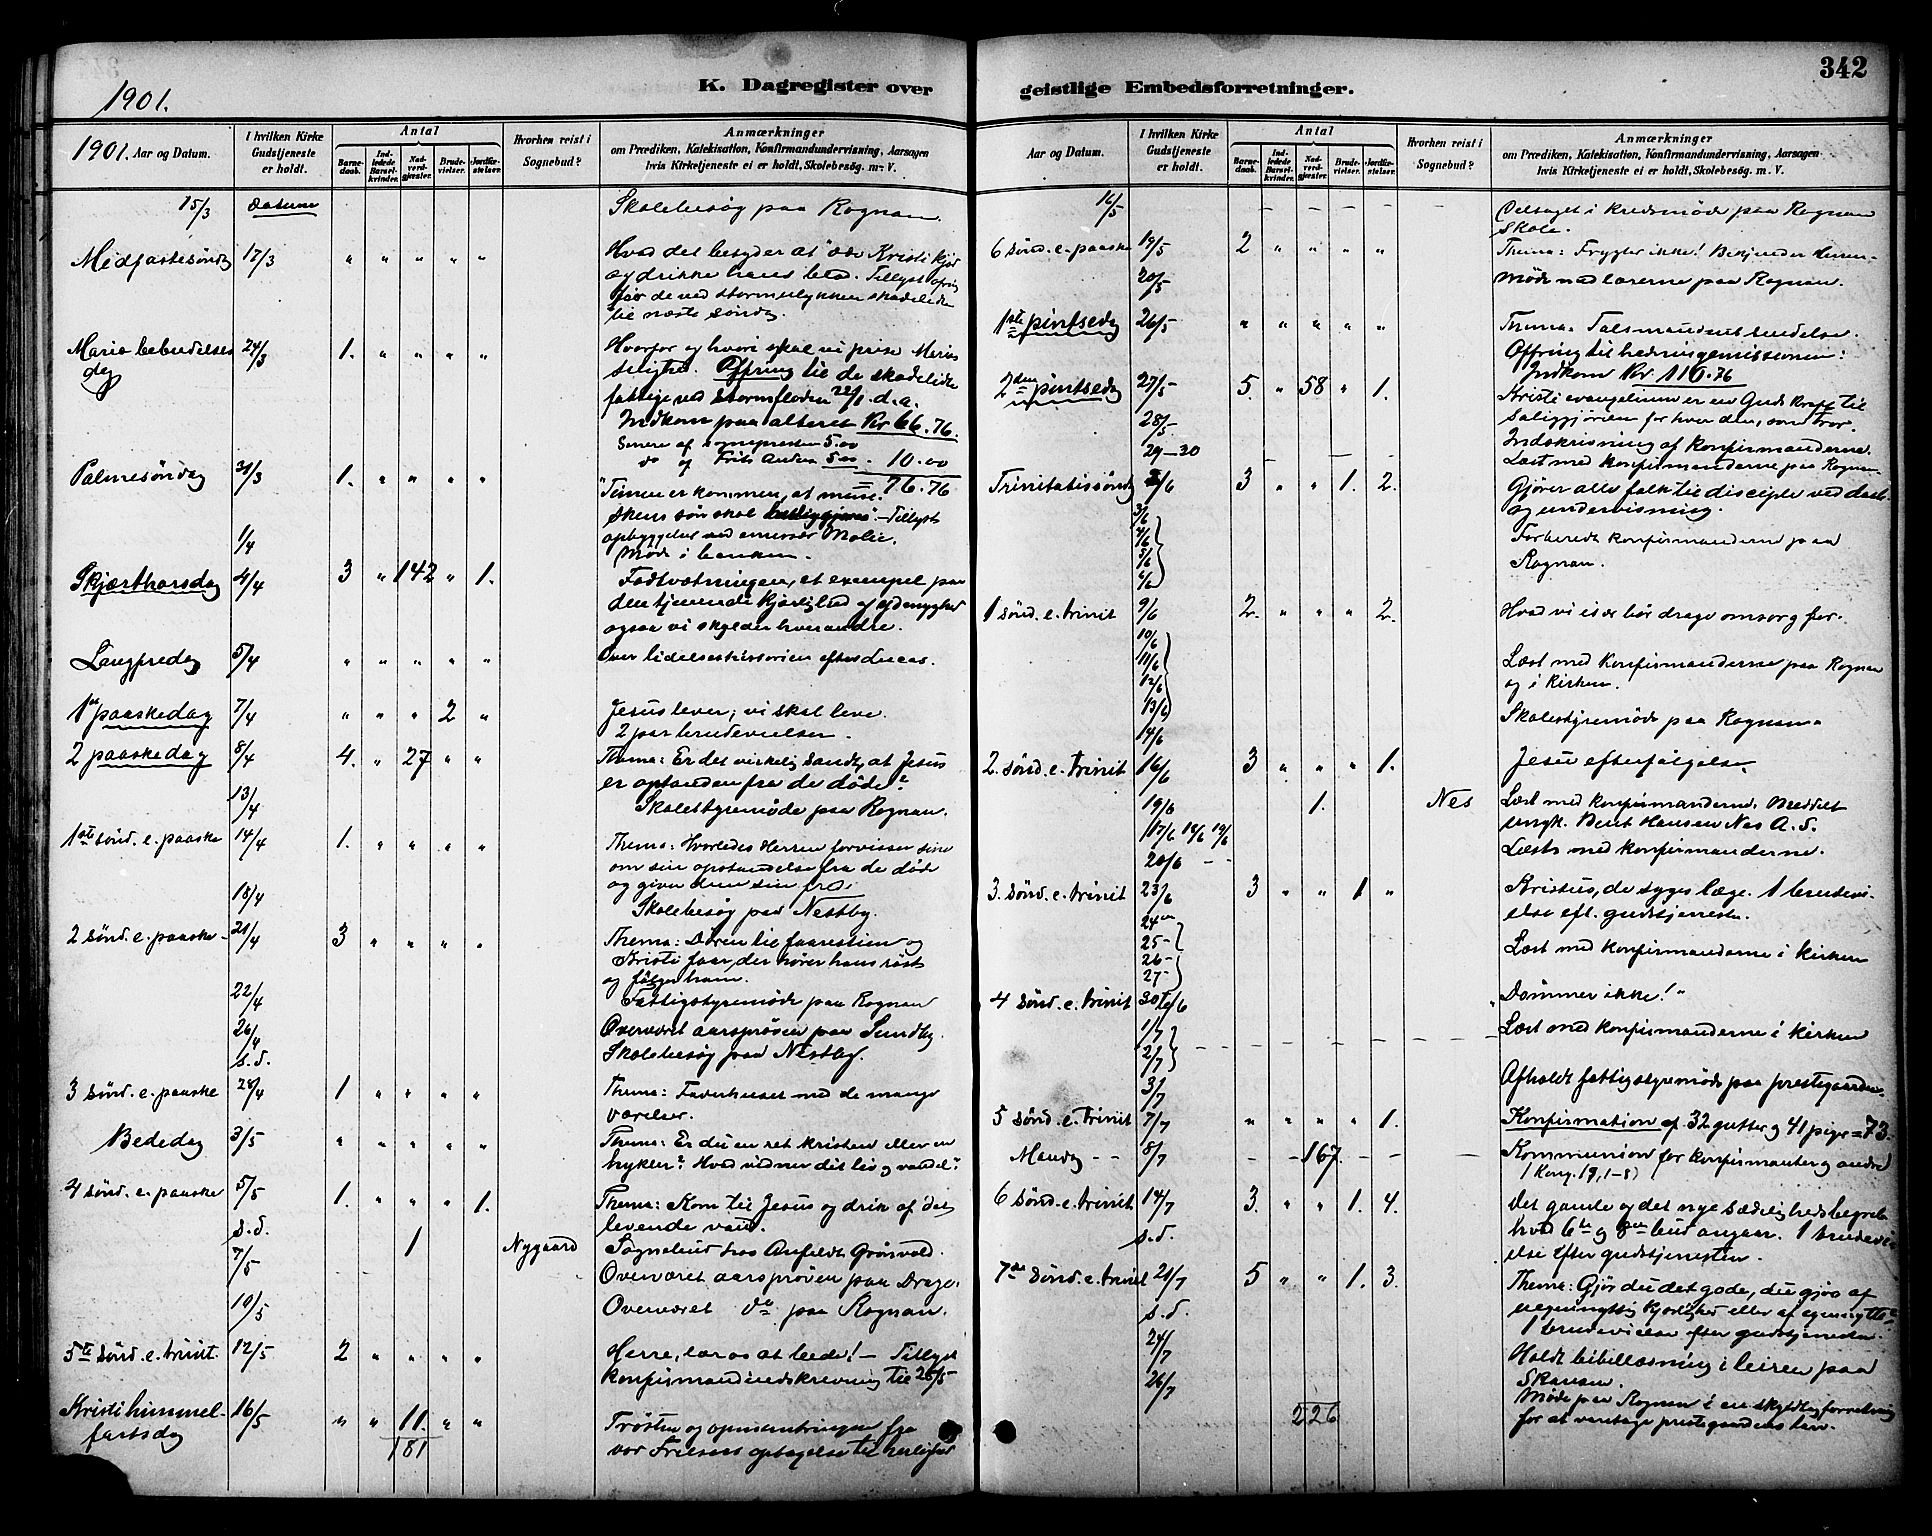 342
1901.
K. Dagregister over
geistlige Embedsforretninger.
1901. Aar og Datum.
I hvilken Kirke Gudstjeneste er holdt.
Antal
Barnedaab.
Indledede Barselkvinder.
Nadverdgjæster.
Brudevielser.
Jordfæstelser.
Hvorhen reist i Sognebud?
Anmærkninger
om Prædiken, Katekisation, Konfirmandundervisning, Aarsagen
hvis Kirketjeneste ei er holdt, Skolebesøg. m. V.
15/3 Datum Skolebesøg paa Rognan.
Midfastesøndag 17/3 " " " " " Hvad det betyder at æde Kristi kjød
og drikke hans blod. Tillyst ofring
for de ved stormulykken skadelidte
til næste søndag.
Maria bebudelses 24/3 1. " " " " Hvorfor og hvori skal vi prise Marias
dag salighet. Offring til de skadelidte
fattige ved stormfloden 22/1 d.a.
Indkom paa alteret Kr 66.76.
Senere af sognepresten 5.00
do af 5.00. 10.00
= 76.76
Palmesøndag 31/3 1. " " " " "Timen er kommen, at menne-
skens søn skal " - Tillyst
opbyggelse ved emissær Molie.
1/4 Møde i banken.
Skjærthorsdag 4/4 3 " 142 " 1. Fodtvætningen, et exempel paa
den tjenende kjærlighed og ydmyghed
ogsaa vi skylder hverandre.
Langfredag 5/4 " " " " " Over lidelseshistorien efter Lucas.
1ste paaskedag 7/4 " " " 2 " Jesus lever; vi skal leve.
2 par brudevielser.
2 paaskedag 8/4 4. " 27 " " Thema: Er det virkelig sandt, at Jesus
er opstanden fra de døde?
13/4 Skolestyremøde paa Rognan.
1ste sønd. e. paaske 14/4 1. " " " " Thema: Hvorledes Herren forvisser sine
om sin opstandelse fra de døde
og giver dem sin fred.
18/4 Skolebesøg paa Nestby.
2 sønd. e. paaske - 21/4 3 " " " " Thema: Døren til faarestien og
Kristi faar, der hører hans røst
og følger ham.
22/4 Fattigstyremøde paa Rognan
26/4 Overværet aarsprøven paa Sundby.
s.d. Skolebesøg paa Nestby.
3 sønd. e. paaske 28/4 1 " " " " Thema: Faderhuset med de mange
værelser.
Bededag 3/5 " " " " " Thema: Er du en ret kristen eller en
hykler? Hvad vidner dit liv og vandel?
4 sønd. e. paaske 5/5 1. " " " 1. Thema: Kom til Jesus og drik af det
levende vand.
s.d. 1 Nygaard Sognebud hos Grønvold.
7/5 Overværet aarsprøven paa Drage.
10/5 Overværet do paa Rognan.
5te sønd. e. trinit. 12/5 2 " " " " Herre, lær os at bede! - Tillyst
konfirmandindskrivning til 28/5
Kristi himmel- 16/5 " " 11. " " Trøsten og opmuntringen fra
fartsdag vor Frelsers optagelse til herlighed
181
Aar og Datum.
I hvilken Kirke Gudstjeneste er holdt.
Antal
Barnedaab.
Indledede Barselkvinder.
Nadverdgjæster.
Brudevielser.
Jordfæstelser.
Hvorhen reist i Sognebud?
Anmærkninger
om Prædiken, Katekisation, Konfirmandundervisning, Aarsagen
hvis Kirketjeneste ei er holdt, Skolebesøg. m. V.
16/5 - - - - - - Deltaget i kredsmøde paa Rognan
skole.
6 sønd. e. paaske 19/5 2 " " " " Thema: Frygter ikke! Bekjender Herren.
20/5 Møde med lærerne paa Rognan.
1ste pintsedag 26/5 " " " " " Thema: Talsmandens sendelse.
Offring til hedningemissionen:
Indkom Kr 110.76
2den pintsedag 27/5 5. " 58 " 1. Kristi evangelium er en Guds kraft til
saliggjørelse for hver den, som tror.
28/5 Indskrivning af konfirmanderne.
29-30 Læst med konfirmanderne paa Rognan
Trinitatissøndag 2/6 3 " " 1. 2. Gjører alle folk til disciple ved daab
og undervisning.
3/6
4/6 Forberedt konfirmanderne paa
5/6 Rognan.
6/6
1 sønd. e. trinit 9/6 2. " " " 2. Hvad vi især bør drage omsorg for.
10/6
11/6 Læst med konfirmanderne paa Rognan
12/6 og i kirken.
13/6
14/6 Skolestyremøde paa Rognan.
2. sønd. e. trinit 16/6 3 " " " 1. Jesu efterfølgelse.
19/6 1. Nes Læst med konfirmanderne. Meddelt
17/6 18/6 19/6 ungk. Bent Hansen Nes A.S.
20/6 - - Læst med konfirmanderne.
3. sønd. e. trinit 23/6 3 " " 1 " Kristus, de syges læge. 1 brudevi-
else eft. gudstjeneste.
24de
25- Læst med konfirmanderne i kirken
26-
27-
4 sønd. e. trinit 30te/6 "Dømmer ikke!"
1/7 Læst med konfirmanderne i kirken
2/7 - - - - - -
3/7 Afholdt fattigstyremøde paa prestegaarden.
5 sønd. e. trinit 7/7 " " " " 1. Konfirmation af 32 gutter og 41 piger = 73.
Mandag - - 8/7 - - 167. - - - Kommunion for konfirmanter og andre
1 Kong. 19, 1-8)
6 sønd. e. trinit 14/7 3. " " 1. 4. Det gamle og det nye sædelighedsbegreb
s.d. hvad 6te og 8de bud angaar. 1 brudevi-
else efter gudstjenesten.
7de sønd. e. trinit 21/7 5 " " 1. 3. Thema: Gjør du det gode, du gjør af
s.d. uegennyttig kjærlighed eller af egennytte?
1 brudevielse efter gudstjenesten.
24/7 Holdt bibellæsning i leiren paa
Skanan.
26/7 Møde paa Rognan i en skyldelingsforretning
226 for at varetage prestegaardens tarv.